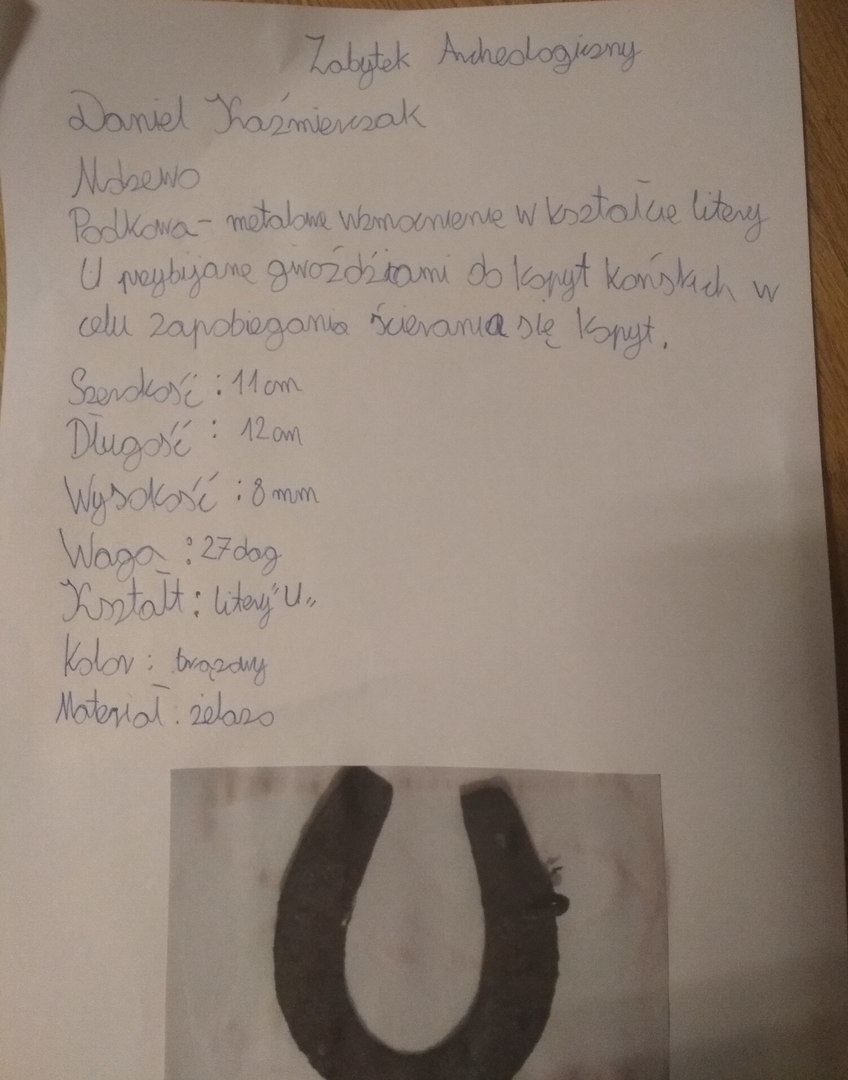 Zabytek Archeologiczny
Daniel Kaźmierczak
Podkowa - metalowe wzmocnienie w kształcie litery
U przybijane gwoździami do kopyt końskich w
celu zapobiegania ścierania się kopyt.
Szerokość : 11 cm
Długość : 12 cm
Wysokość : 8 mm
Waga : 27 dag
Kształt : litery "U„
Kolor : brązowy
Materiał : żelazo